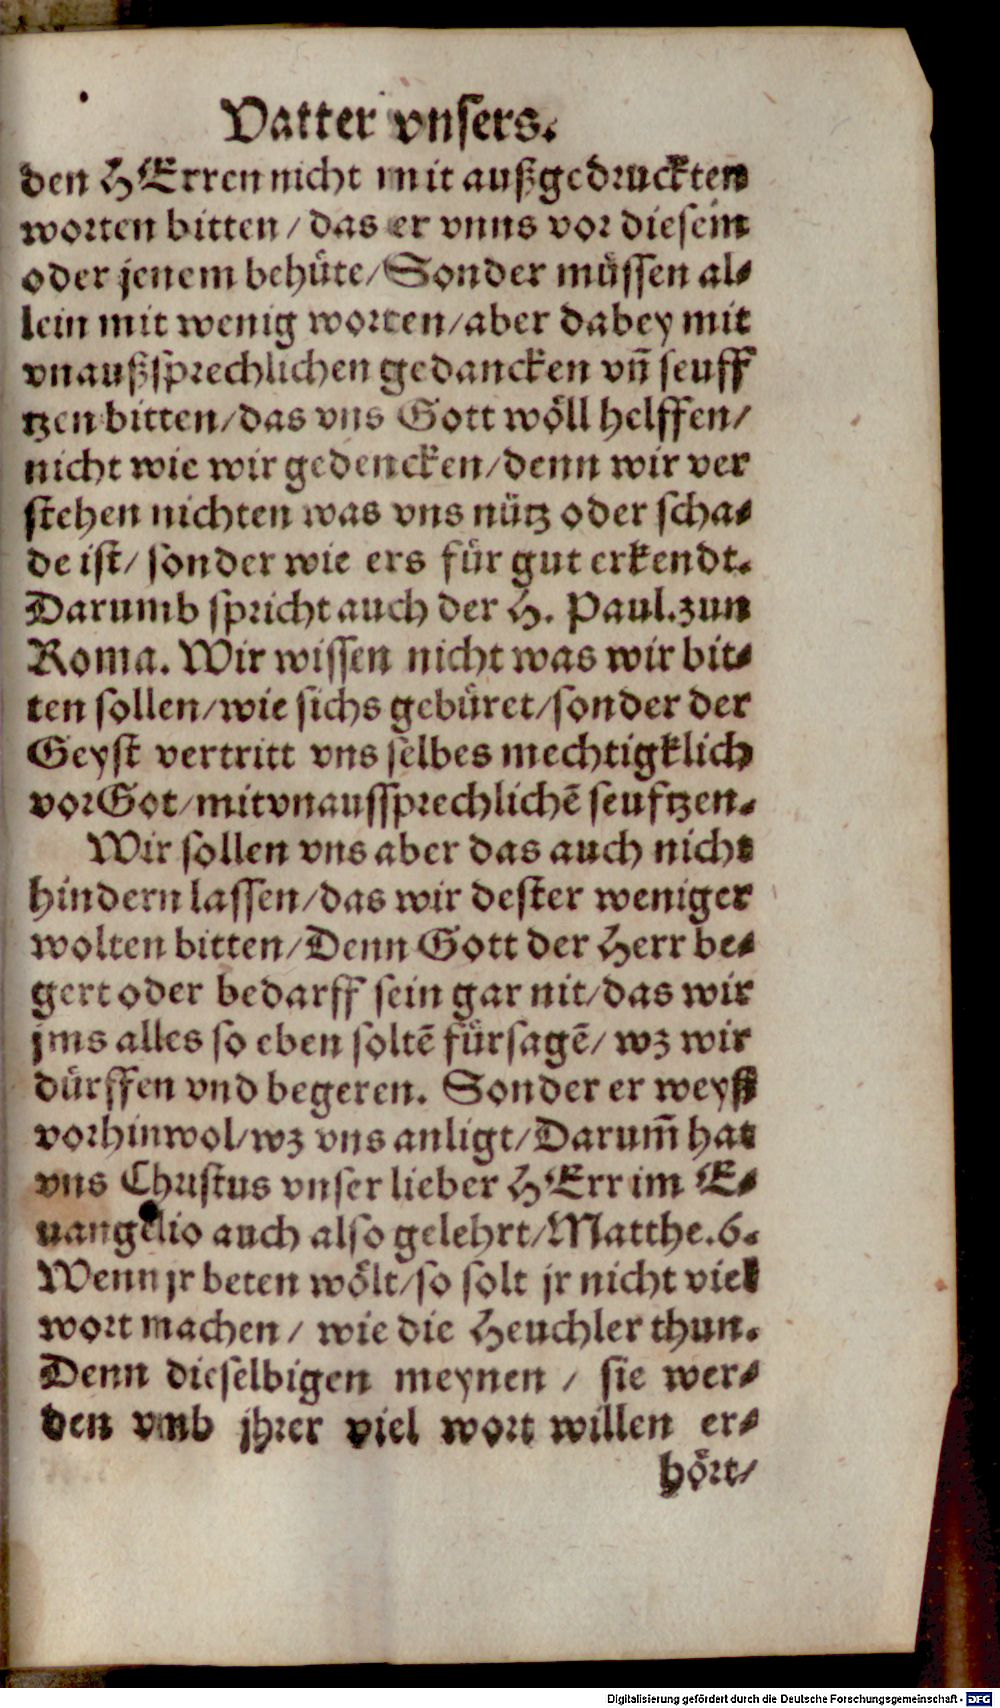 Vatter vnsers.
den HErren nicht mit außgedruckten
worten bitten / das er vnns vor diesem
oder jenem behüte / Sonder müssen al-
lein mit wenig worten / aber dabey mit
vnaußsprechlichen gedancken vn̄ seuff
tzen bitten / das vns Gott wöll helffen /
nicht wie wir gedencken / denn wir ver
stehen nichten was vns nütz oder scha-
de ist / sonder wie ers für gut erkendt.
Darumb spricht auch der H. Paul. zun
Roma. Wir wissen nicht was wir bit-
ten sollen / wie sichs gebüret / sonder der
Geyst vertritt vns selbes mechtigklich
vor Got / mit vnaussprechlichē seuftzen.
Wir sollen vns aber das auch nicht
hindern lassen / das wir dester weniger
wolten bitten / Denn Gott der Herr be-
gert oder bedarff sein gar nit / das wir
jms alles so eben soltē fürsagē / wz wir
dürffen vnd begeren. Sonder er weyß
vorhin wol / wz vns anligt / Darum̄ hat
vns Christus vnser lieber HErr im E-
uangelio auch also gelehrt / Matthe. 6.
Wenn jr beten wölt / so solt jr nicht viel
wort machen / wie die Heuchler thun.
Denn dieselbigen meynen / sie wer-
den vmb jhrer viel wort willen er-
hört /
Digitalisierung gefördert durch die Deutsche Forschungsgemeinschaft - DFG